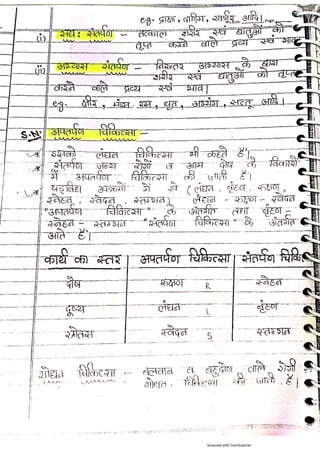 e.g. द्राक्षा, दाडिम, खर्जूर आदि।
(i) सद्यः संतर्पण - तत्काल शरीर एवं धातुओं को
तृप्त करने वाले द्रव्य एवं भाव।
(ii) अभ्यास संतर्पण - निरन्तर अभ्यास के द्वारा
शरीर एवं धातुओं को तृप्त
करने वाले द्रव्य एवं भाव।
e.g. क्षीर, मांस रस, घृत, आदि।
अपतर्पण चिकित्सा -
इसको लंघन चिकित्सा भी कहते हैं।
संतर्पण जन्य रोगों व आम दोष के विकारों
में अपतर्पण चिकित्सा की जाती है।
षड्विध उपक्रमो में से (लंघन, बृंहण, रुक्षण,
स्नेहन, स्वेदन, स्तम्भन) लंघन - रुक्षण - स्वेदन
"अपतर्पण चिकित्सा" के अंतर्गत तथा बृंहण -
स्नेहन - स्तम्भन "संतर्पण चिकित्सा" के अंतर्गत
आते हैं।
कार्य का स्तर अपतर्पण चिकित्सा संतर्पण चिकि
दोष रुक्षण R स्नेहन
दूष्य लंघन L बृंहण
स्रोतस स्वेदन S स्तम्भन
शोधन चिकित्सा - बलवान व बहुदोष वाले रोगी
शोधन चिकित्सा की जाती है।
Scanned with CamScanner